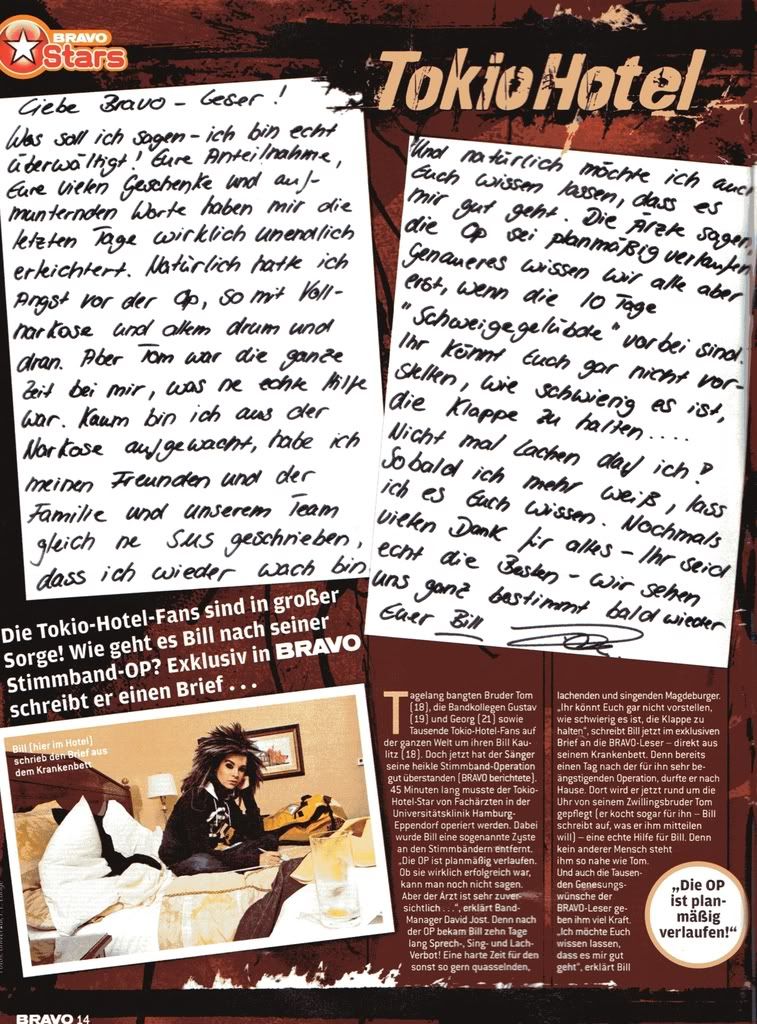 BRAVO
Stars
Tokio Hotel
Liebe Bravo-Leser!
Was soll ich sagen - ich bin echt
überwältigt! Eure Anteilnahme,
Eure vielen Geschenke und auf-
munternden Worte haben mir die
letzten Tage wirklich unendlich
erleichtert. Natürlich hatte ich
Angst vor der Op, so mit Voll-
narkose und allem drum und
dran. Aber Tom war die ganze
Zeit bei mir, was ne echte Hilfe
war. Kaum bin ich aus der
Narkose aufgewacht, habe ich
meinen Freunden und der
Familie und unserem Team
gleich ne SMS geschrieben,
dass ich wieder wach bin
Und natürlich möchte ich auch
Euch wissen lassen, dass es
mir gut geht. Die Ärzte sagen,
die Op sei planmäßig verlaufen
genaueres wissen wir alle aber
erst, wenn die 10 Tage
"Schweigegelübde" vorbei sind.
Ihr könnt Euch gar nicht vor-
stellen, wie schwierig es ist,
die Klappe zu halten....
Nicht mal lachen darf ich!
Sobald ich mehr weiß, lass
ich es Euch wissen. Nochmals
vielen Dank für alles - Ihr seid
echt die Besten - wir sehen
uns ganz bestimmt bald wieder
Euer Bill
Die Tokio-Hotel-Fans sind in großer
Sorge! Wie geht es Bill nach seiner
Stimmband-OP? Exklusiv in BRAVO
schreibt er einen Brief . . .
Bill (hier im Hotel)
schrieb den Brief aus
dem Krankenbett
Tagelang bangten Bruder Tom
(18), die Bandkollegen Gustav
(19) und Georg (21) sowie
Tausende Tokio-Hotel-Fans auf
der ganzen Welt um ihren Bill Kau-
litz (18). Doch jetzt hat der Sänger
seine heikle Stimmband-Operation
gut überstanden (BRAVO berichtete).
45 Minuten lang musste der Tokio-
Hotel-Star von Fachärzten in der
Universitätsklinik Hamburg-
Eppendorf operiert werden. Dabei
wurde Bill eine sogenannte Zyste
an den Stimmbändern entfernt.
„Die OP ist planmäßig verlaufen.
Ob sie wirklich erfolgreich war,
kann man noch nicht sagen.
Aber der Arzt ist sehr zuver-
sichtlich . . .“, erklärt Band-
Manager David Jost. Denn nach
der OP bekam Bill zehn Tage
lang Sprech-, Sing- und Lach-
Verbot! Eine harte Zeit für den
sonst so gern quasselnden,
lachenden und singenden Magdeburger.
„Ihr könnt Euch gar nicht vorstellen,
wie schwierig es ist, die Klappe zu
halten“, schreibt Bill jetzt im exklusiven
Brief an die BRAVO-Leser – direkt aus
seinem Krankenbett. Denn bereits
einen Tag nach der für ihn sehr be-
ängstigenden Operation, durfte er nach
Hause. Dort wird er jetzt rund um die
Uhr von seinem Zwillingsbruder Tom
gepflegt (er kocht sogar für ihn – Bill
schreibt auf, was er ihm mitteilen
will) – eine echte Hilfe für Bill. Denn
kein anderer Mensch steht
ihm so nahe wie Tom.
Und auch die Tausen-
den Genesungs-
wünsche der
BRAVO-Leser ge-
ben ihm viel Kraft.
„Ich möchte Euch
wissen lassen,
dass es mir gut
geht“, erklärt Bill
„Die OP
ist plan-
mäßig
verlaufen!“
BRAVO 14